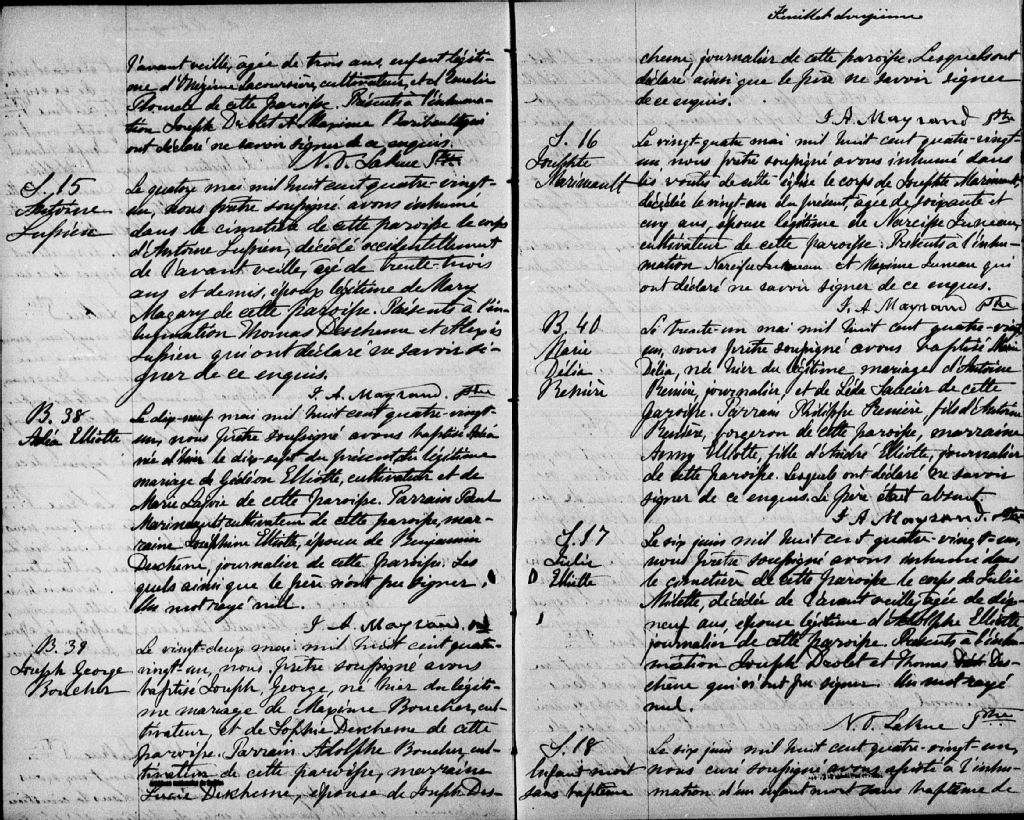 l'avant veille, âgée de trois ans, enfant légiti-
me d'Onézime Lacoursière, cultivateur, et d'Amélie
Thomas de cette paroisse. Présents à l'inhuma-
tion Joseph Drolet et Maxime qui
ont déclaré ne savoir signer de ce enquis.
N. O. Larue Ptre
S. 15
Antoine
Lupien
Le quatorze mai mil huit cent quatre-vingt-
un, nous prêtre soussigné avons inhumé
dans le cimetière de cette paroisse le corps
d'Antoine Lupien, décédé accidentellement
de l'avant veille, âgé de trente-trois
ans et demis, époux légitime de Mary
Magary de cette paroisse. Présents à l'in-
humation Thomas Deschene et Alexis
Lupien qui ont déclaré ne savoir si-
gner de ce enquis.
F. A. Mayrand ptre
B. 38
Adia Elliotte
Le dix-neuf mai mil huit cent quatre-vingt-
un, nous prêtre soussigné avons baptisé
née d'hier le dix-sept du présent du légitime
mariage de Gédéon Elliotte, cultivateur et de
Marie Lafoie de cette paroisse. Parrain Paul
Marineault, cultivateur de cette paroisse, mar-
raine Joséphine Elliotte, épouse de Benjamin
Deschène, journalier de cette paroisse. Les
quels ainsi que le père n'ont pu signer.
Un mot rayé nul.
F. A. Mayrand. ptre
B. 39
Joseph George
Boucher
Le vingt-deux mai mil huit cent quatre-
vingt-un, nous, prêtre soussigné avons
baptisé Joseph, George, né hier du légiti-
me mariage de Maxime Boucher, cul-
tivateur, et de Sophie Deschene de cette
paroisse. Parrain Adolphe Boucher, cul-
tivateur de cette paroisse, marraine
Lucie Deschene, épouse de Joseph Des-
Feuillet douzième
chene, journalier de cette paroisse. Lesquels ont
déclaré, ainsi que le père ne savoir signer
de ce enquis.
F. A. Mayrand Ptre
S. 16
Josephte
Marineault
Le vingt-quatre mai mil huit cent quatre-vingt-
un nous prêtre soussigné avons inhumé dans
les voutes de cette église le corps de Josephte Marineault,
décédée le vingt-un du présent, agée de soixante et
cinq ans, épouse légitime de Narcisse Juneau,
cultivateur de cette paroisse. Présents à l'inhu-
mation Narcisse Juneau et Maxime Juneau qui
ont déclaré ne savoir signer de ce enquis.
F. A. Mayrand Ptre
B. 40
Marie
Délia
Benière
Le trente-un mai mil huit cent quatre-vingt
un, nous prêtre soussigné avons baptisé Marie
Délia, née hier du légitime mariage d'Antoine
journalier et de Léda de cette
paroisse. Parrain Philippe fils d'Antoine
forgeron de cette paroisse, marraine
Anny Elliotte, fille d'André Elliotte, journalier
de cette paroisse. Lesquels ont déclaré ne savoir
signer de ce enquis. Le père était absent.
F. A Mayrand. Ptre
S. 17
Julie
Elliotte
Le six juin mil huit cent quatre-vingt-un,
nous prêtre soussigné avons inhumé dans
le cimetière de cette paroisse le corps de Julie
Milette, décédée de l'avant veille, agée de dix-
neuf ans, épouse légitime d'Adolphe Elliotte
journalier de cette paroisse. Présents à l'inhu-
mation Joseph Drolet et Thomas Des-
chène qui n'ont pu signer. Un mot rayé
nul.
N. O. Larue Ptre
S. 18
Enfant mort
sans baptême
Le six juin mil huit cent quatre-vingt-un,
nous curé soussigné avons assisté à l'inhu-
mation d'un enfant mort sans baptême de